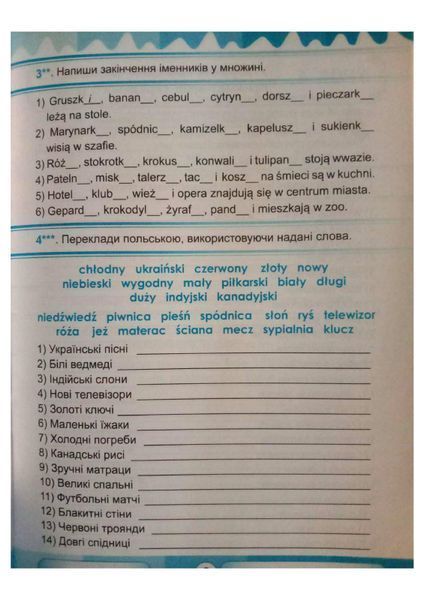 3**. Напиши закінчення іменників у множині.
1) Gruszk_i_, banan__, cebul__, cytryn__, dorsz__ i pieczark__
leżą na stole.
2) Marynark__, spódnic__, kamizelk__, kapelusz__ i sukienk__
wisią w szafie.
3) Róż__, stokrotk__, krokus__, konwali__ i tulipan__ stoją wwazie.
4) Pateln__, misk__, talerz__, tac__ i kosz__ na śmieci są w kuchni.
5) Hotel__, klub__, wież__ i opera znajdują się w centrum miasta.
6) Gepard__, krokodyl__, żyraf__, pand__ i mieszkają w zoo.
4***. Переклади польською, використовуючи надані слова.
chłodny ukraiński czerwony złoty nowy
niebieski wygodny mały piłkarski biały długi
duży indyjski kanadyjski
niedźwiedź piwnica pieśń spódnica słoń ryś telewizor
róża jeż materac ściana mecz sypialnia klucz
1) Українські пісні
2) Білі ведмеді
3) Індійські слони
4) Нові телевізори
5) Золоті ключі
6) Маленькі їжаки
7) Холодні погреби
8) Канадські рисі
9) Зручні матраци
10) Великі спальні
11) Футбольні матчі
12) Блакитні стіни
13) Червоні троянди
14) Довгі спідниці